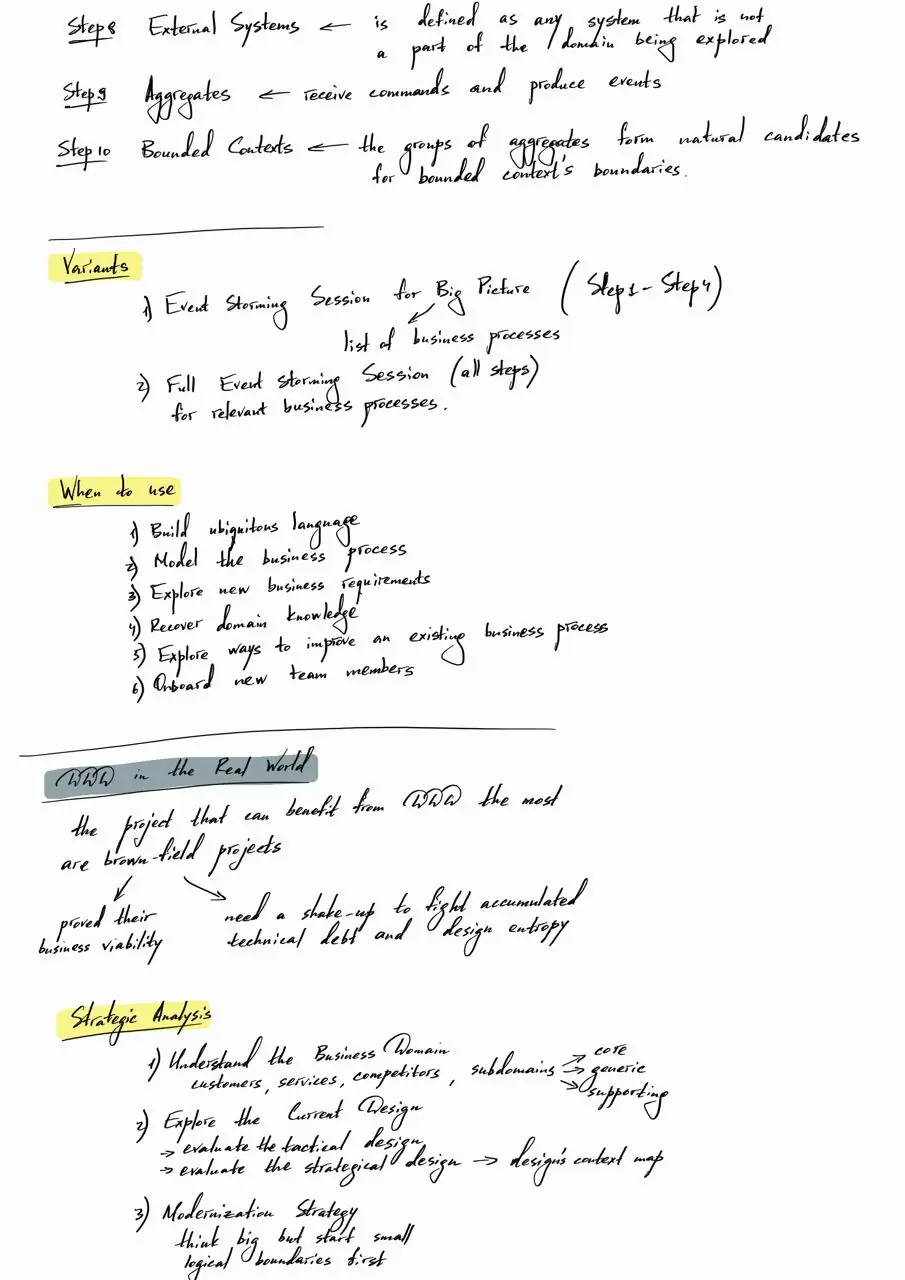 Step 8 External Systems ← is defined as any system that is not
a part of the domain being explored
Step 9 Aggregates ← receive commands and produce events
Step 10 Bounded Contexts ← the groups of aggregates form natural candidates
for bounded context's boundaries.
Variants
1) Event Storming Session for Big Picture (Step 1 - Step 4)
list of business processes
2) Full Event Storming Session (all steps)
for relevant business processes.
When to use
1) Build ubiquitous language
2) Model the business process
3) Explore new business requirements
4) Recover domain knowledge
5) Explore ways to improve an existing business process
6) Onboard new team members
DDD in the Real World
the project that can benefit from DDD the most
are brown-field projects
proved their
business viability
need a shake-up to fight accumulated
technical debt and design entropy
Strategic Analysis
1) Understand the Business Domain
customers, services, competitors, subdomains → core
→ generic
→ supporting
2) Explore the Current Design
→ evaluate the tactical design
→ evaluate the strategical design → design's context map
3) Modernization Strategy
think big but start small
logical boundaries first